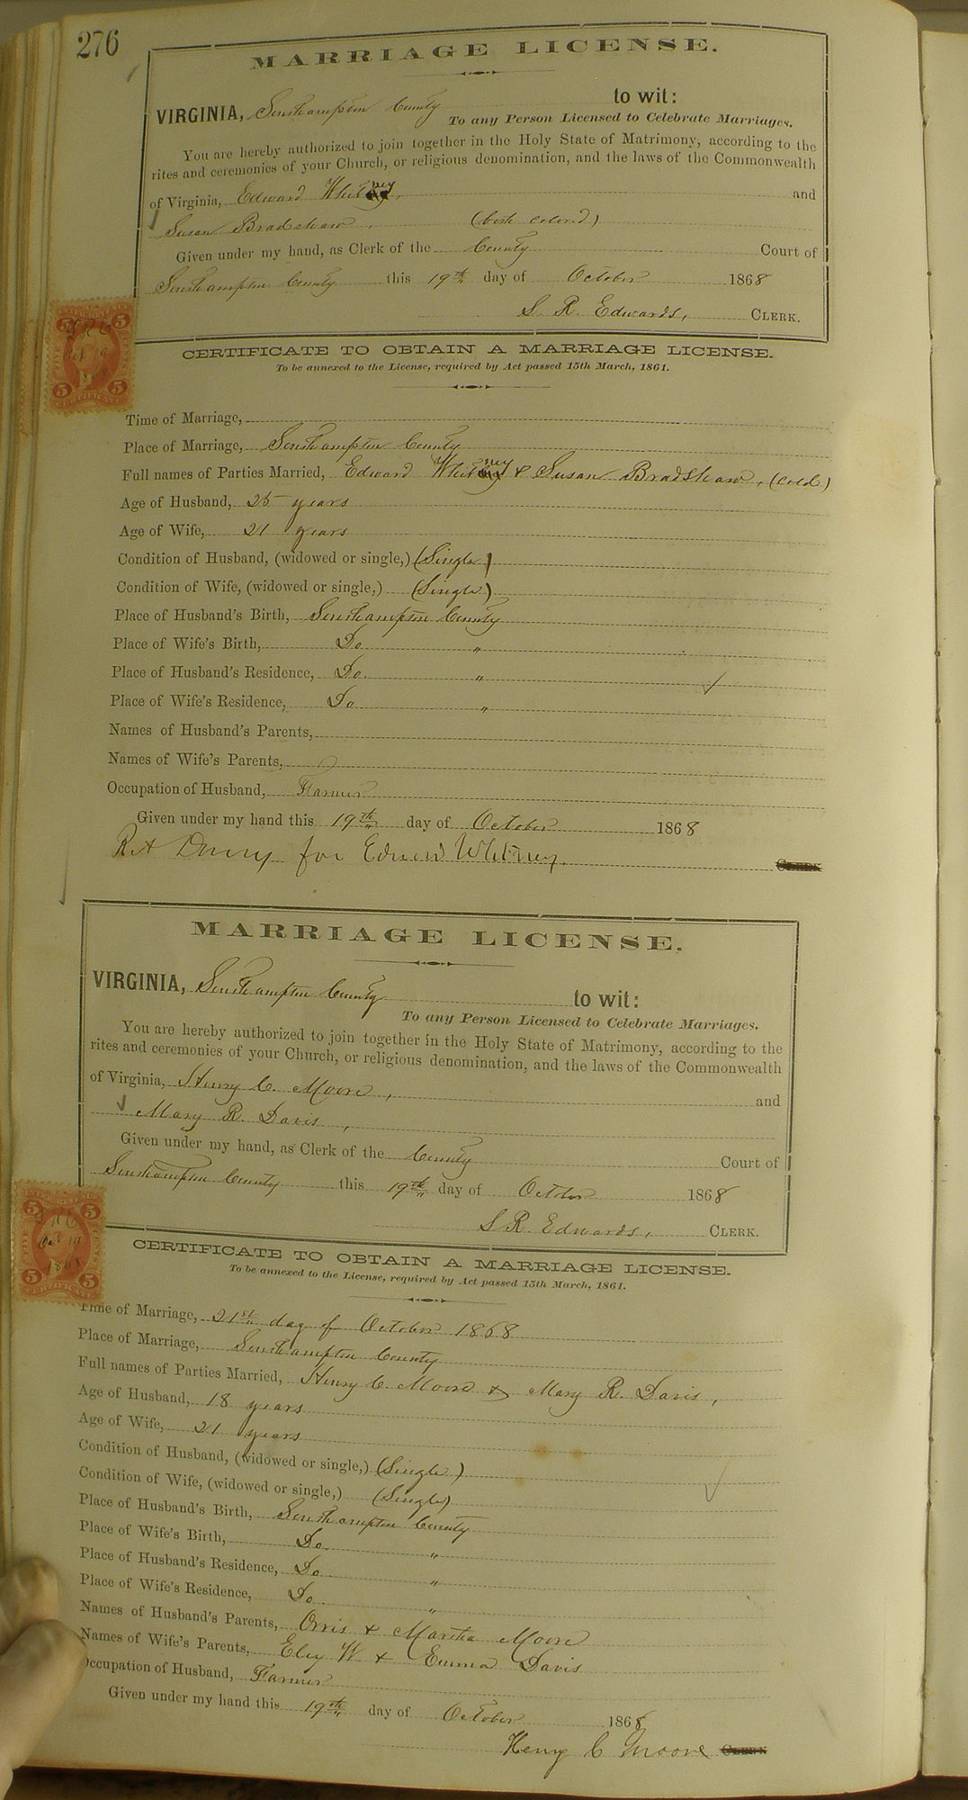 276
MARRIAGE LICENSE.
VIRGINIA, Southampton County to wit:
To any Person Licensed to Celebrate Marriages.
You are hereby authorized to join together in the Holy State of Matrimony, according to the
rites and ceremonies of your Church, or religious denomination, and the laws of the Commonwealth
of Virginia, Edward Whitney, and
Susan Bradshaw, (both colored)
Given under my hand, as Clerk of the County Court of
Southampton County this 19th day of October 1868
S. R. Edwards, CLERK.
CERTIFICATE TO OBTAIN A MARRIAGE LICENSE.
To be annexed to the License, required by Act passed 15th March, 1861.
Time of Marriage,
Place of Marriage, Southampton County
Full names of Parties Married, Edward Whitney & Susan Bradshaw, (cold)
Age of Husband, 25 years
Age of Wife, 21 years
Condition of Husband, (widowed or single,) (Single)
Condition of Wife, (widowed or single,) (Single)
Place of Husband's Birth, Southampton County
Place of Wife's Birth, Do "
Place of Husband's Residence, Do "
Place of Wife's Residence, Do "
Names of Husband's Parents,
Names of Wife's Parents,
Occupation of Husband, Farmer
Given under my hand this 19th day of October 1868
for Edward Whitney. CLERK
MARRIAGE LICENSE.
VIRGINIA, Southampton County to wit:
To any Person Licensed to Celebrate Marriages.
You are hereby authorized to join together in the Holy State of Matrimony, according to the
rites and ceremonies of your Church, or religious denomination, and the laws of the Commonwealth
of Virginia, Henry C. Moore, and
Mary R. Davis,
Given under my hand, as Clerk of the County Court of
Southampton County this 19th day of October 1868
S. R. Edwards, CLERK.
CERTIFICATE TO OBTAIN A MARRIAGE LICENSE.
To be annexed to the License, required by Act passed 15th March, 1861.
Time of Marriage, 21st day of October 1868
Place of Marriage, Southampton County
Full names of Parties Married, Henry C. Moore & Mary R. Davis,
Age of Husband, 18 years
Age of Wife, 21 years
Condition of Husband, (widowed or single,) (Single)
Condition of Wife, (widowed or single,) (Single)
Place of Husband's Birth, Southampton County
Place of Wife's Birth, Do "
Place of Husband's Residence, Do "
Place of Wife's Residence, Do "
Names of Husband's Parents, Orris & Martha Moore
Names of Wife's Parents, Eley W & Emma Davis
Occupation of Husband, Farmer
Given under my hand this 19th day of October 1868
Henry C Moore CLERK